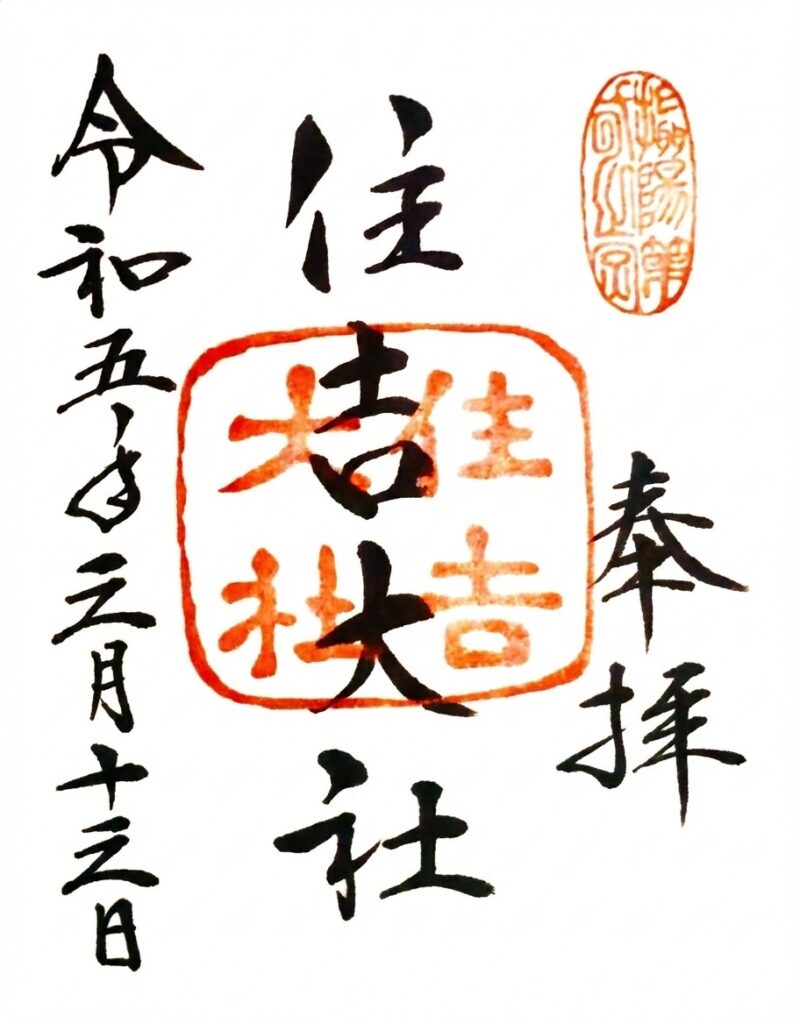 奉拝
住吉大社
住吉
大社
令和五年三月十三日